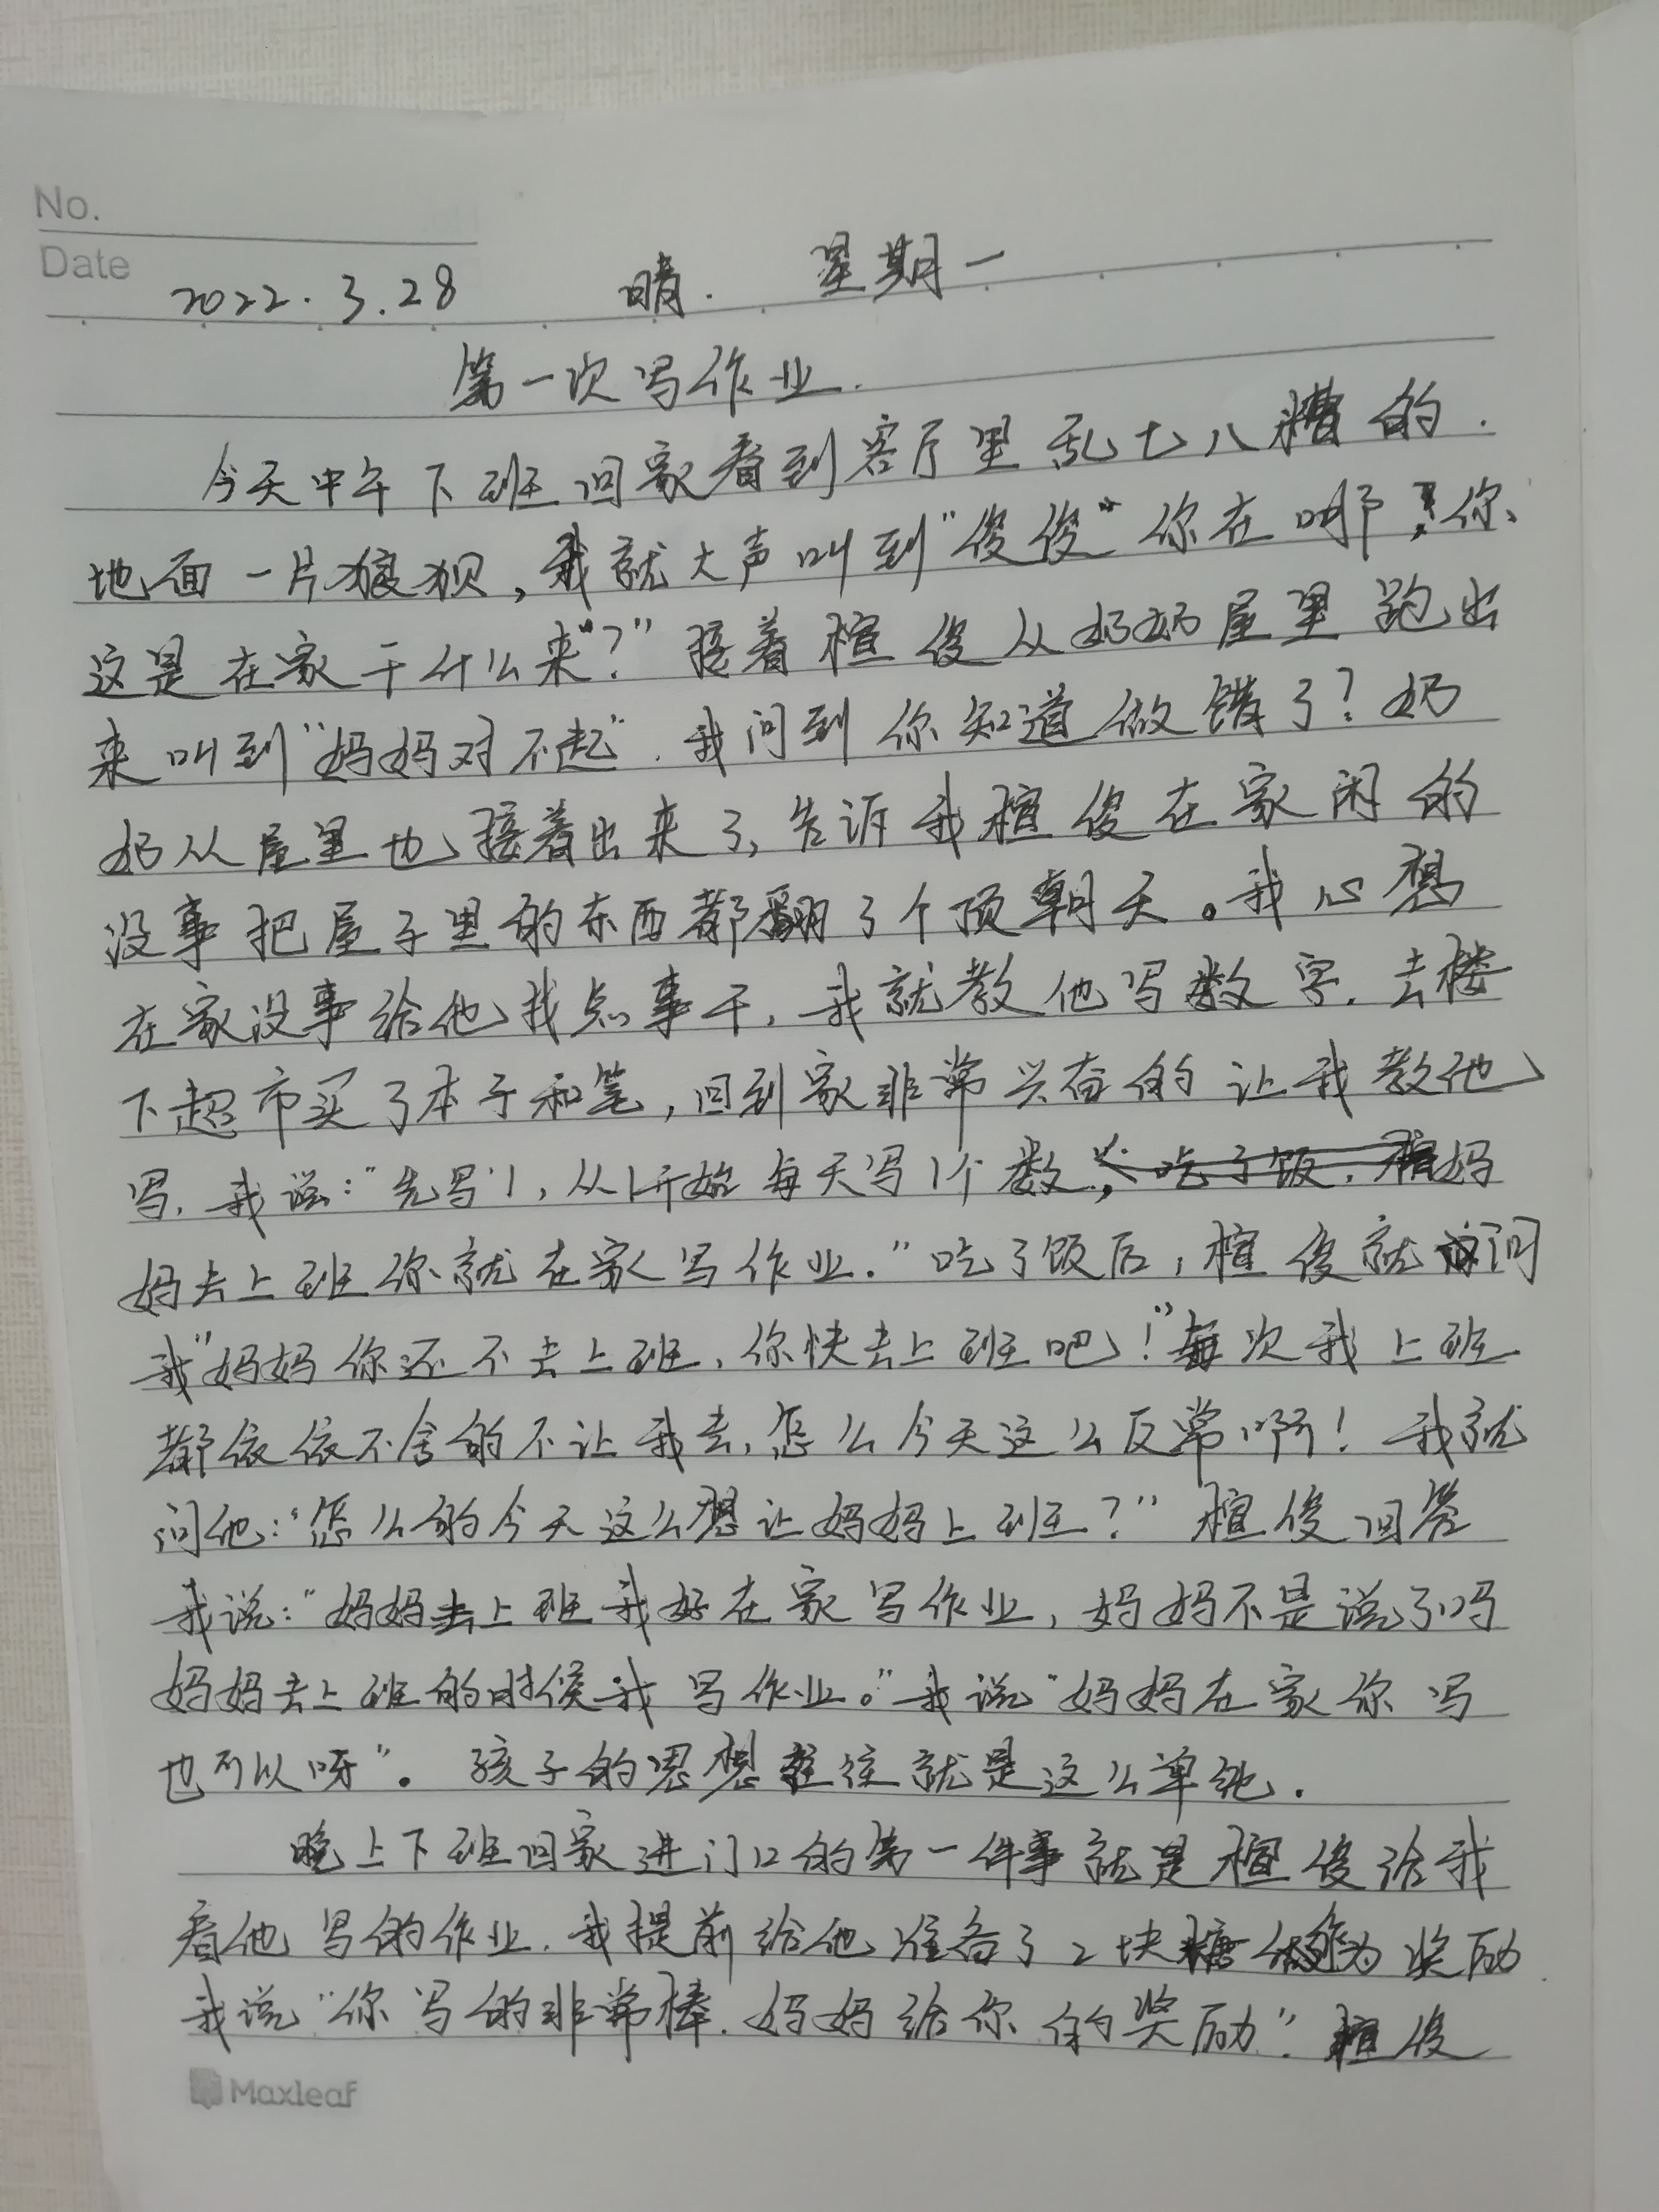 No.
Date
2022.3.28 晴. 星期一
第一次写作业.
今天中午下班回家看到客厅里乱七八糟的.
地面一片狼狈,我就大声叫到"俊俊"你在哪!你
这是在家干什么来"?"接着楦俊从奶奶屋里跑出
来叫到"妈妈对不起".我问到你知道做错了?奶
奶从屋里也接着出来了,告诉我楦俊在家闲的
没事把屋子里的东西都翻了个顶朝天。我心想
在家没事给他找点事干,我就教他写数字.去楼
下超市买了本子和笔,回到家非常兴奋的让我教他
写.我说:"先写1,从1开始每天写1个数,妈
妈去上班你就在家写作业."吃了饭后,楦俊就问
我"妈妈你还不去上班,你快去上班吧!"每次我上班
都依依不舍的不让我去,怎么今天这么反常啊!我就
问他:"怎么的今天这么想让妈妈上班?"楦俊回答
我说:"妈妈去上班我好在家写作业,妈妈不是说了吗
妈妈去上班的时候我写作业。"我说"妈妈在家你写
也可以呀"。孩子的思想往往就是这么单纯.
晚上下班回家进门口的第一件事就是楦俊给我
看他写的作业.我提前给他准备了2块糖作为奖励
我说"你写的非常棒.妈妈给你的奖励".楦俊
Maxleaf